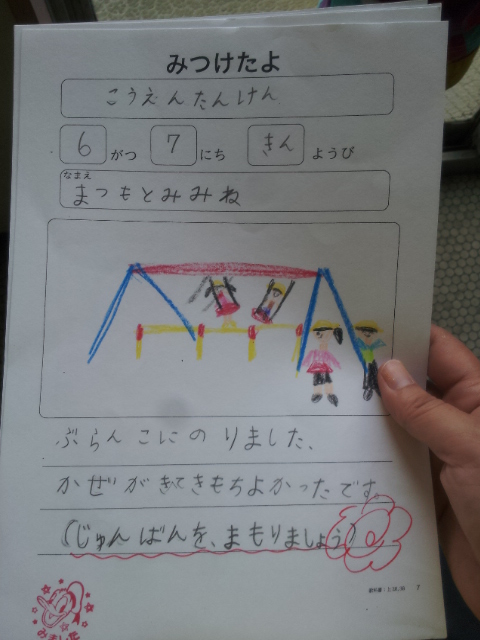 みつけたよ
こうえんたんけん
6 がつ 7 にち きん ようび
なまえ
まつもとみみね
ぶらんこにのりました、
かぜがきてきもちよかったです。
(じゅんばんを、まもりましょう)
7